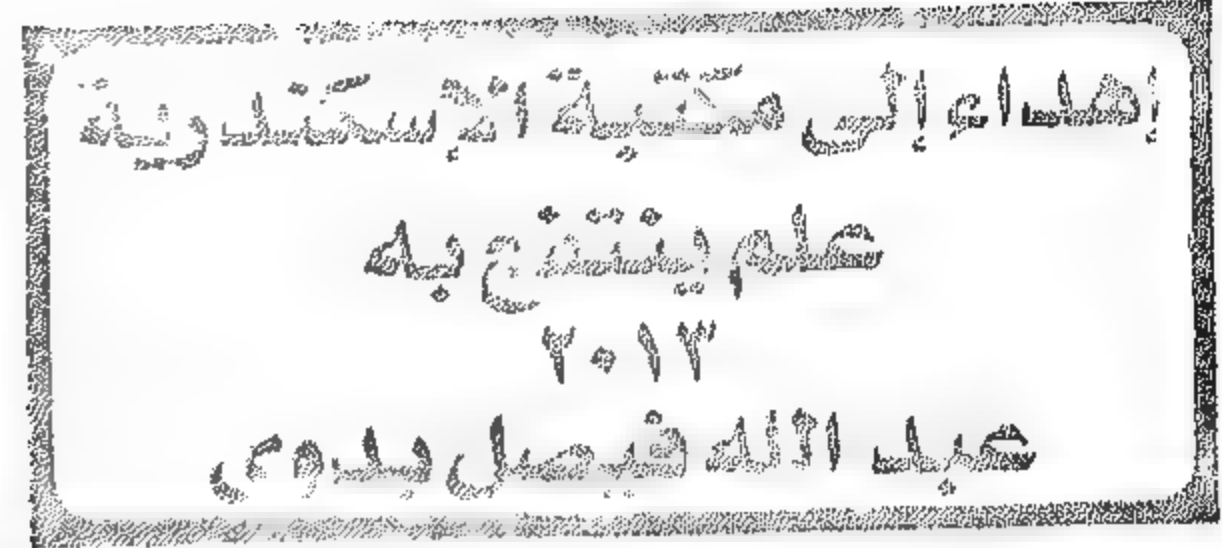 إهداء إلى مكتبة الإسكندرية
علم ينتفع به
٢٠١٣
عبد الله فيصل بدوى